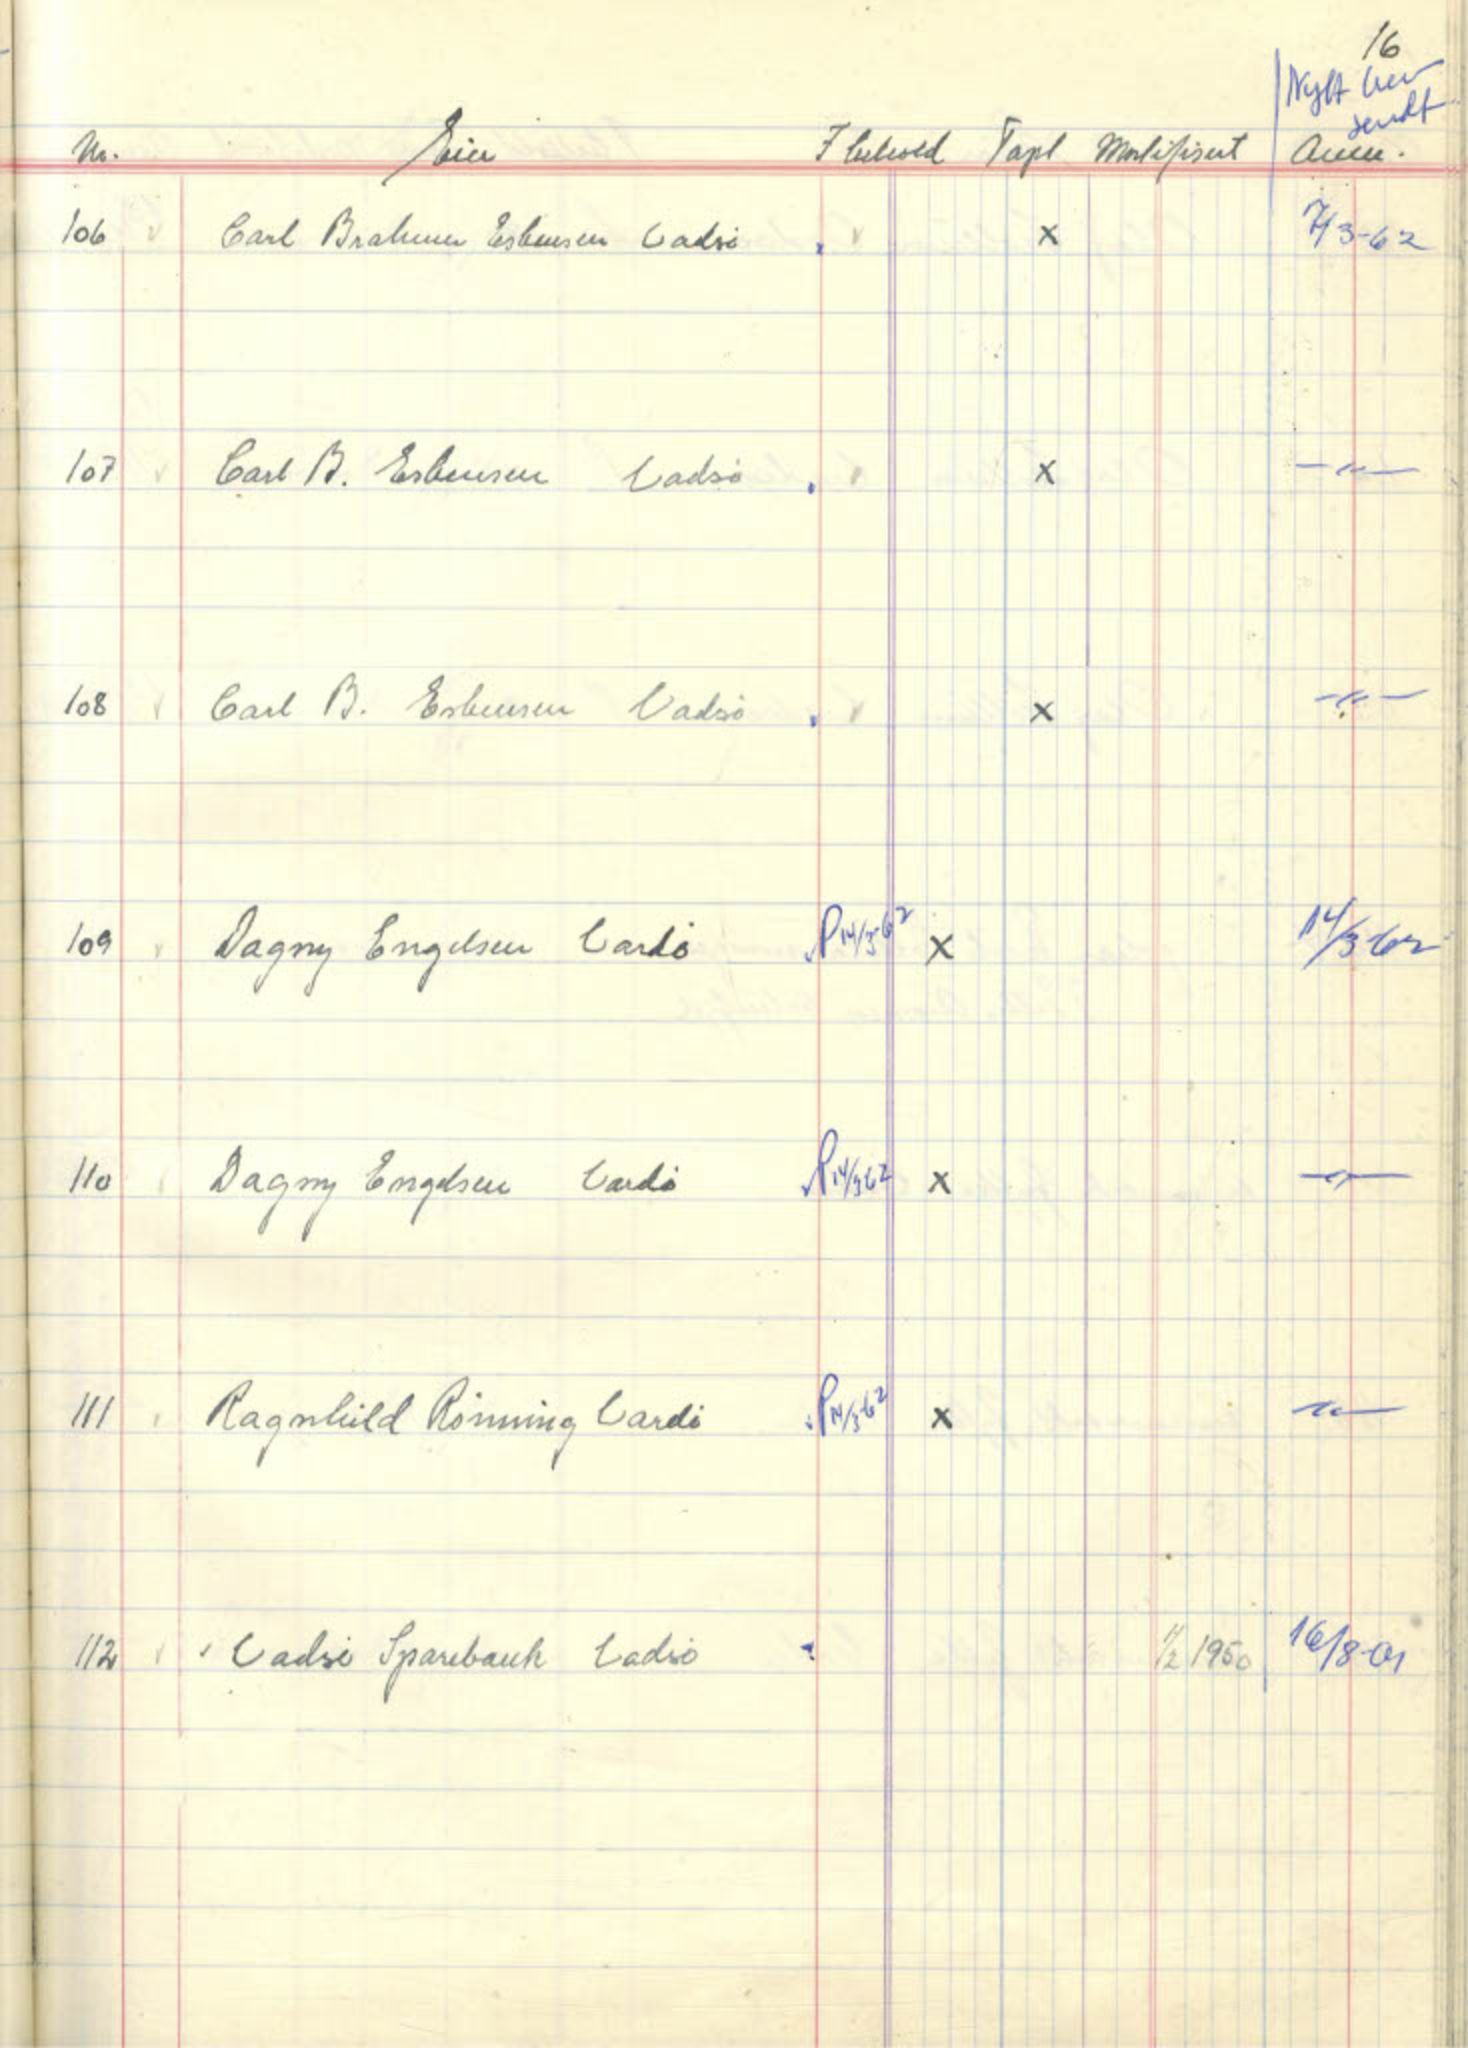 16
Nytt brev
sendt
No. Eier I behold Tapt Mortifisert Anm.
106 Carl Brahmer Esbensen Vadsö x 7/3-62
107 Carl B. Esbensen Vadsö x —"—
108 Carl B. Esbensen Vadsö x —"—
109 Dagny Engelsen Vardö P 14/3-62 x 14/3-62
110 Dagny Engelsen Vardö P 14/3 62 x —"—
111 Ragnhild Rönning Vardö P 14/3-62 x —"—
112 Vadsö Sparebank Vadsö 1950 16/8-01